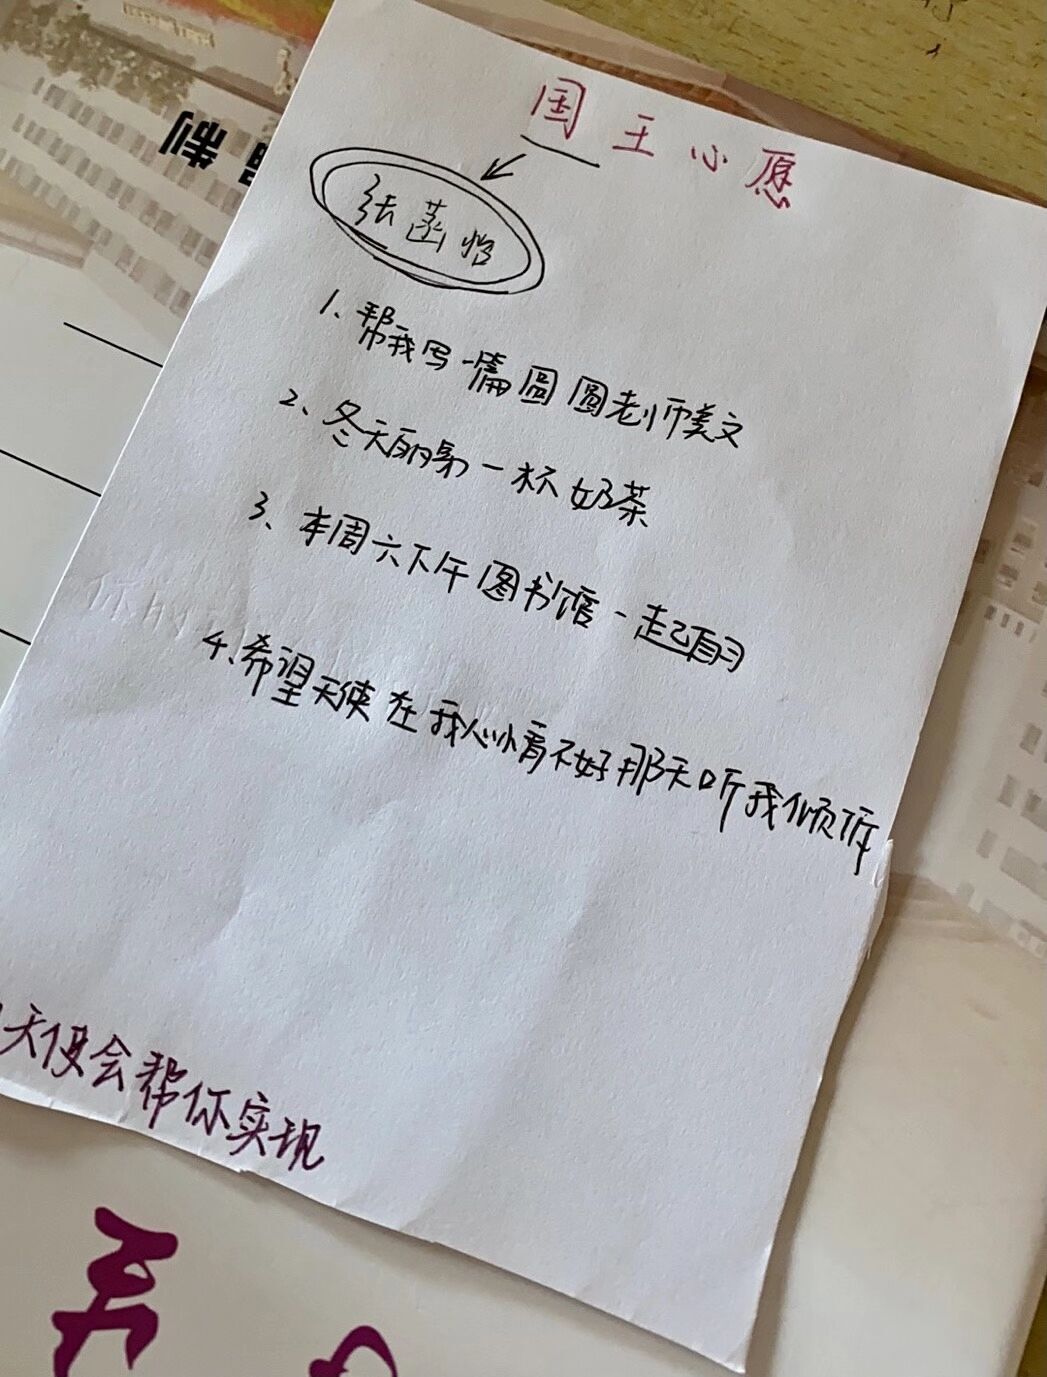 国王心愿
张菡怡
1、帮我写一篇圆圆老师美文
2、冬天的第一杯奶茶
3、本周六下午图书馆一起自习
4、希望天使在我心情不好那天听我倾诉
天使会帮你实现
制